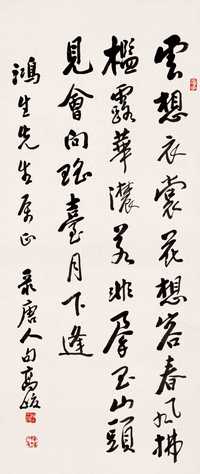 雲想衣裳花想容春風拂
檻露華濃若非群玉山頭
見會向瑤臺月下逢
鴻生先生属正
录唐人句高